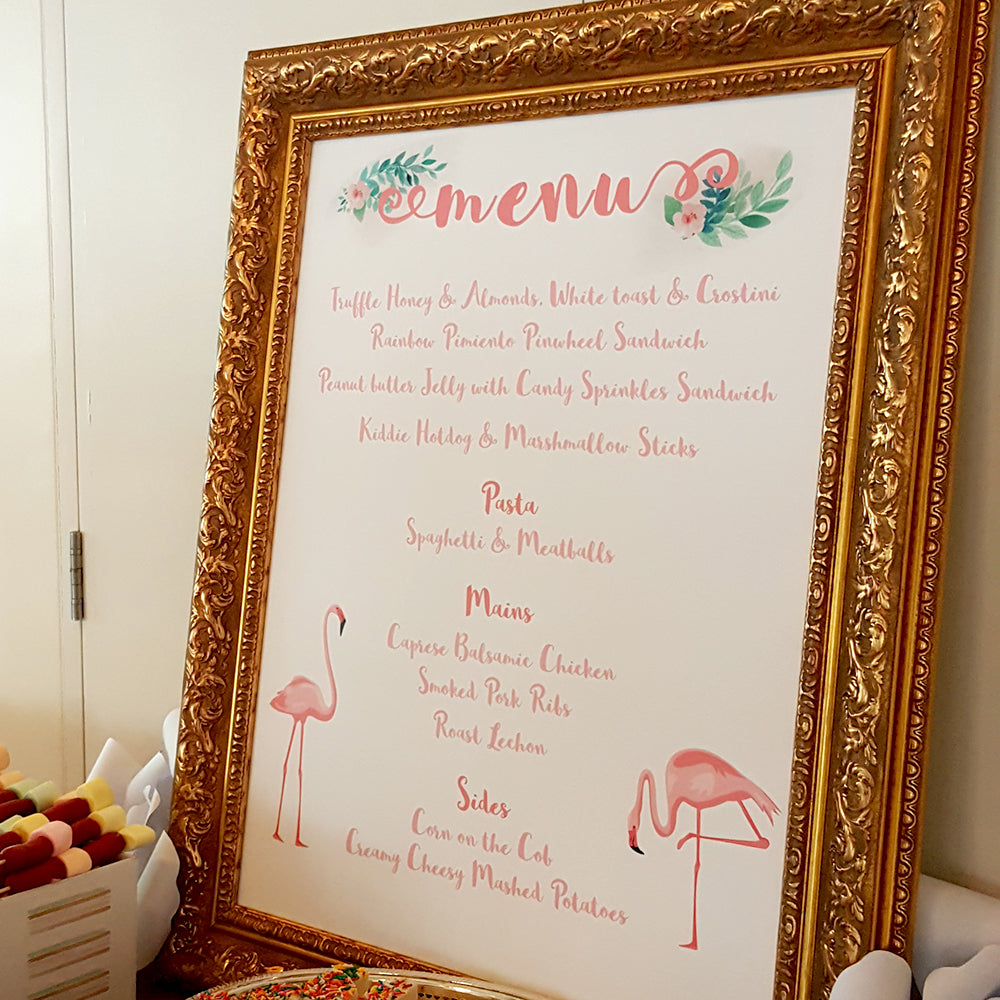 menu
Truffle Honey & Almonds, White toast & Crostini
Rainbow Pimiento Pinwheel Sandwich
Peanut butter Jelly with Candy Sprinkles Sandwich
Kiddie Hotdog & Marshmallow Sticks
Pasta
Spaghetti & Meatballs
Mains
Caprese Balsamic Chicken
Smoked Pork Ribs
Roast Lechon
Sides
Corn on the Cob
Creamy Cheesy Mashed Potatoes